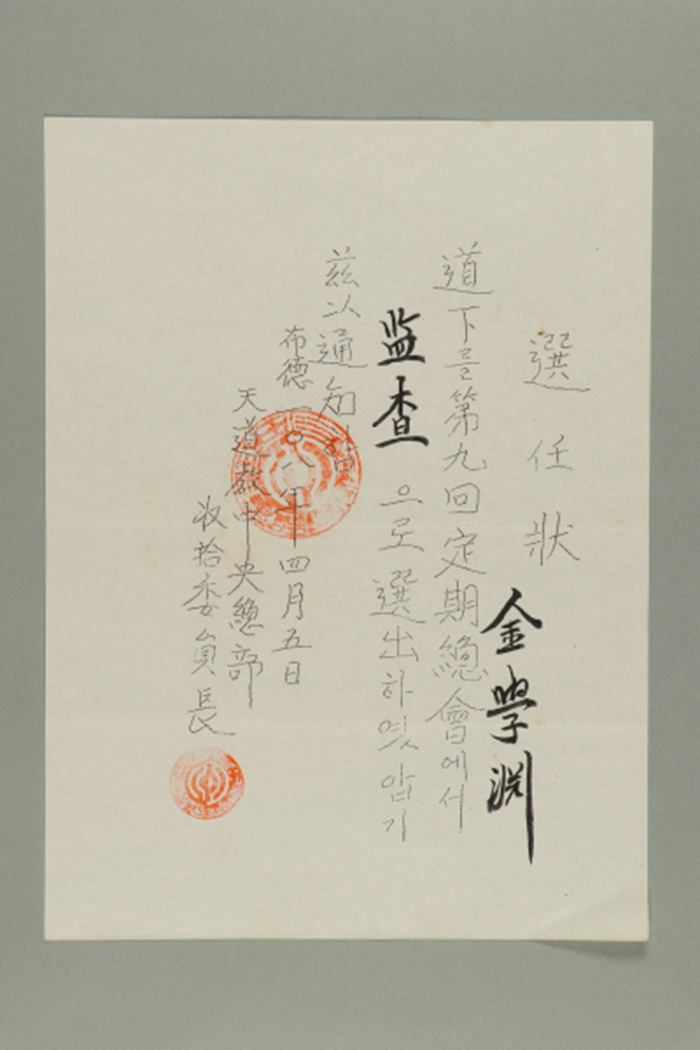 選任狀
金學淵
道下를第九回定期總會에서
監査으로選出하엿압기
玆以通知
布德一〇八年四月五日
天道敎中央總部
收拾委員長